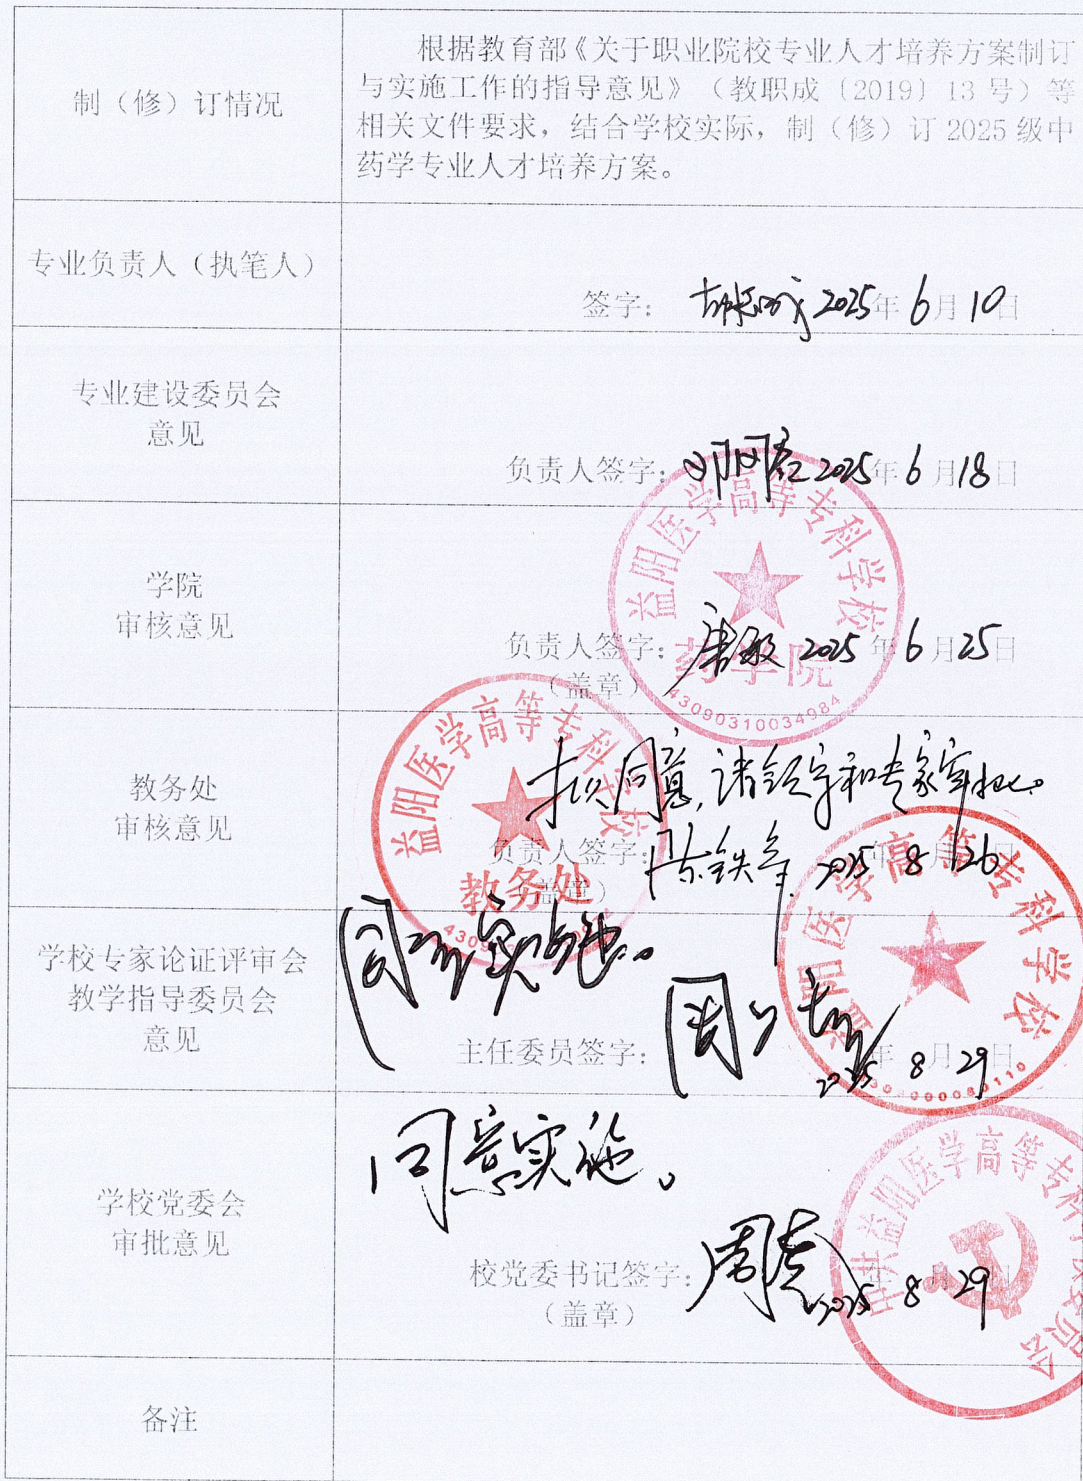 制（修）订情况
根据教育部《关于职业院校专业人才培养方案制订
与实施工作的指导意见》（教职成〔2019〕13 号）等
相关文件要求，结合学校实际，制（修）订 2025 级中
药学专业人才培养方案。
专业负责人（执笔人）
签字： 2025年 6月 10日
专业建设委员会
意见
负责人签字： 2025年 6月 18日
益阳医学高等专科学校
药学院
43090310034984
学院
审核意见
负责人签字：唐敏 2025年 6月 25日
（盖章）
益阳医学高等专科学校
教务处
教务处
审核意见
拟同意，请领导和专家审批。
负责人签字：陈铁 2025年 8月 26日
（盖章）
益阳医学高等专科学校
学校专家论证评审会
教学指导委员会
意见
同意实施。
主任委员签字： 2025年 8月 29日
学校党委会
审批意见
同意实施。
校党委书记签字： 2025年 8月 29日
（盖章）
中共益阳医学高等专科学校委员会
备注